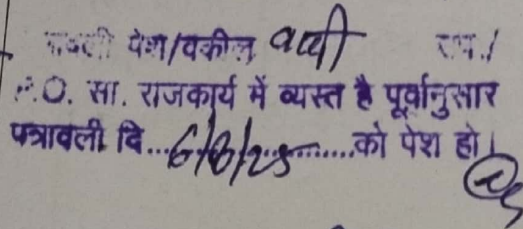 पेश/वकील वादी उप./
P.O. सा. राजकार्य में व्यस्त है पूर्वानुसार
पत्रावली दि...6/8/25...........को पेश हो।